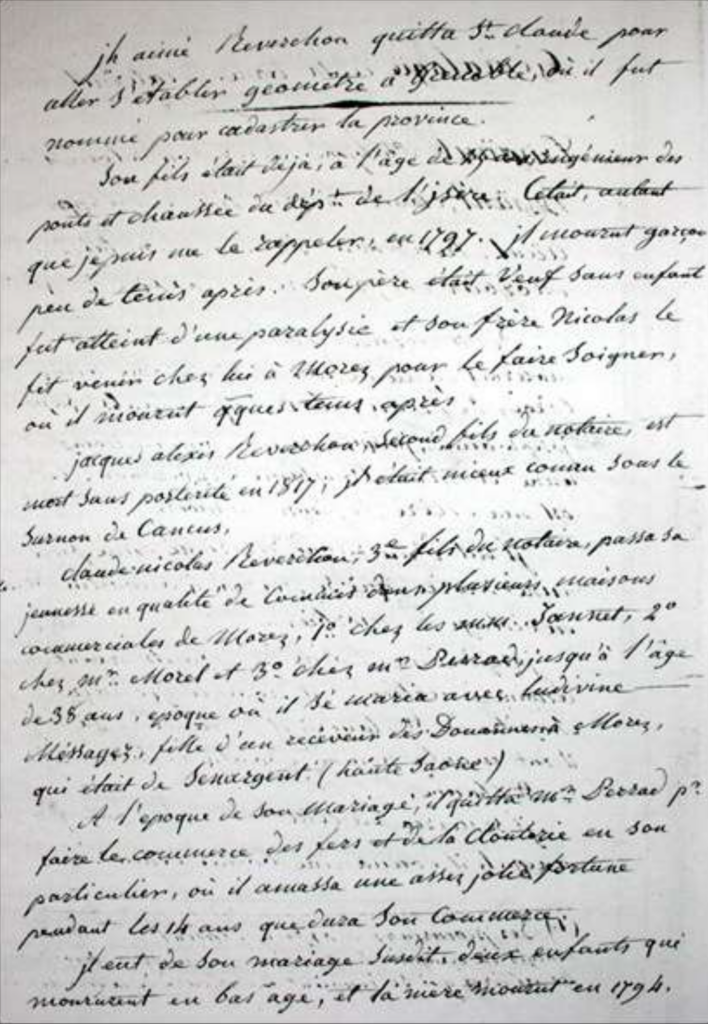 jh aimé Reverchon quitta St. claude pour
aller s'établir géomètre a grenoble, où il fut
nommé pour cadastrer la province.
Son fils était déja, à l'âge de ans ingénieur des
ponts et chaussée du dépt. de l'isère. C'était, autant
que je puis me le rappeler, en 1797. jl mourut garçon
peu de tems après. Son père était Veuf sans enfant
fut atteint d'une paralysie et son frère Nicolas le
fit venir chez lui à Morez pour le faire soigner,
où il mourut qques tems après
jacques alexis Reverchon, second fils du notaire, est
mort sans posterité en 1817, jl était mieux connu sous le
surnon de Cancus,
claude-nicolas Reverchon, 3e fils du notaire, passa sa
jeunesse en qualité de Commis dans plusieurs maisons
commerciales de Morez, 1o chez les mm. Jannet, 2o
chez mr. Morel et 3o chez mr Perrad, jusqu'à l'âge
de 38 ans, époque où il se maria avec ludivine
Méssagez, fille d'un receveur des Douannes à Morez,
qui était de Senargent (haute Saone)
A l'époque de son mariage, il quitta mr. Perrad pr.
faire le commerce des fers et de la Clouterie en son
particulier, où il amassa une assez jolie fortune
pendant les 14 ans que dura son Commerce.
jl eut de son mariage susdit, deux enfants qui
moururent en bas age, et la mère mourut en 1794.